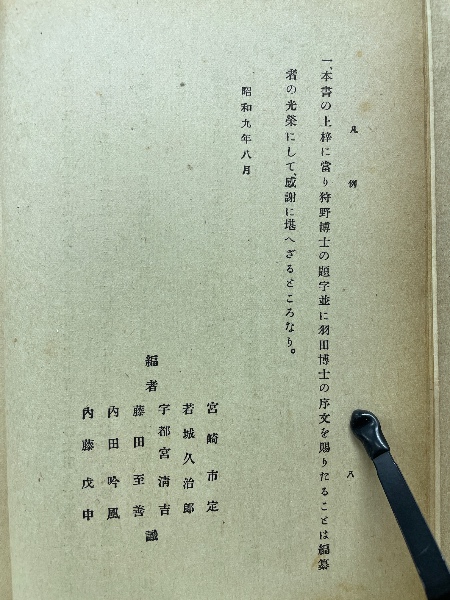 凡例
八
一、本書の上梓に當り狩野博士の題字並に羽田博士の序文を賜りたることは編纂
者の光榮にして、感謝に堪へざるところなり。
昭和九年八月
宮崎市定
若城久治郎
宇都宮清吉
編者 藤田至善 識
内田吟風
内藤戊申